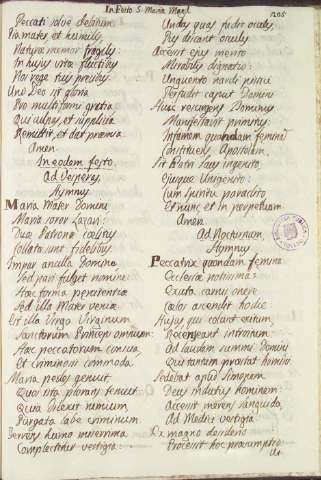 In Festo S. Mariæ Magd.
1205
Peccati solve debitum.
Pia mater et humilis,
Naturæ memor fragilis:
In hujus vitæ fluctibus
Nos rege tuis precibus
Uni Deo sit gloria
Pro multiformi gratia
Qui culpas et supplicia
Remittit, et dat præmia
Amen.
In eodem festo.
Ad Vesperas
Hymnus
Maria Mater Domini
Maria soror Lazari:
Duæ Patronæ cœlitus
Collatæ sunt fidelibus
Impar ancilla Dominæ
Sed pari fulget nomine:
Hæc forma penitentiæ
Sed illa Mater veniæ
Et illa Virgo Virginum
Sanctorum Princeps omnium:
Hæc peccatorum conscia
Et criminosis commoda.
Maria pedes genuit,
Quos ista plorans tenuit
Quia dilexit nimium,
Purgata labe criminum
Servos humo
Complectitur vestigia:
Undas quas fudit oculis,
Pes siccant oculis
Accessit ejus merito
Mirabilis
Unguento nardi pistici
Perfudit caput Domini
Huic resurgens Dominus
Manifestavit primitus:
Infamem quondam feminam
Constituens Apostolam.
Sit Patri laus ingenito,
Ejusque Unigenito:
Cum spiritu paraclito
Et nunc et in perpetuum
Amen
Ad Nocturnum
Hymnus
Peccatrix quondam femina
Ecclesiæ notissima:
Exuta carnis onere
Cœlos ascendit hodie
Hujus qui colunt exitum,
Recenseant introitum
Ad laudem summi Domini
Qui tantum præstat homini
Sedebat apud Simonem
Deus indutus hominem:
Accessit mœrens languida,
Ad Medici vestigia
Ex magno desiderio
Processit hæc præsumptio
Ut